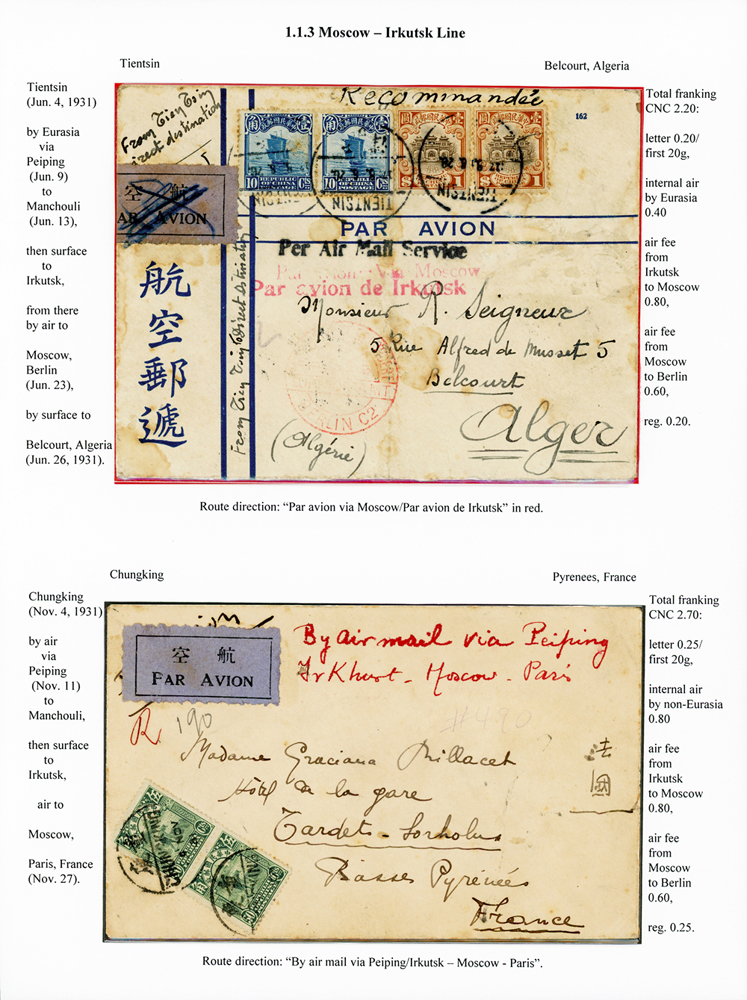 1.1.3 Moscow – Irkutsk Line
Tientsin
Belcourt, Algeria
Tientsin
(Jun. 4, 1931)
by Eurasia
via
Peiping
(Jun. 9)
to
Manchouli
(Jun. 13),
then surface
to
Irkutsk,
from there
by air to
Moscow,
Berlin
(Jun. 23),
by surface to
Belcourt, Algeria
(Jun. 26, 1931).
Recommandée
From Tien Tsin
Direct destination
162
10 REPUBLIC OF CHINA 10
TIENTSIN
TIENTSIN
空 航
PAR AVION
PAR AVION
Per Air Mail Service
Par avion Via Moscow
Par avion de Irkutsk
航空郵遞
From Tien Tsin Direct Destination
Monsieur R. Seigneur
5 Rue Alfred de Musset 5
Belcourt
Alger
(Algérie)
BERLIN C2
Total franking
CNC 2.20:
letter 0.20/
first 20g,
internal air
by Eurasia
0.40
air fee
from
Irkutsk
to Moscow
0.80,
air fee
from
Moscow
to Berlin
0.60,
reg. 0.20.
Route direction: “Par avion via Moscow/Par avion de Irkutsk” in red.
Chungking
Pyrenees, France
Chungking
(Nov. 4, 1931)
by air
via
Peiping
(Nov. 11)
to
Manchouli,
then surface
to
Irkutsk,
air to
Moscow,
Paris, France
(Nov. 27).
空 航
PAR AVION
By air mail via Peiping
Irkhust - Moscow - Paris
R 190
#490
Madame Graciana Brillacet
Hôtel de la gare
Tardets-Sorholus
Basses Pyrénées
France
法國
Total franking
CNC 2.70:
letter 0.25/
first 20g,
internal air
by non-Eurasia
0.80
air fee
from
Irkutsk
to Moscow
0.80,
air fee
from
Moscow
to Berlin
0.60,
reg. 0.25.
Route direction: “By air mail via Peiping/Irkutsk – Moscow - Paris”.